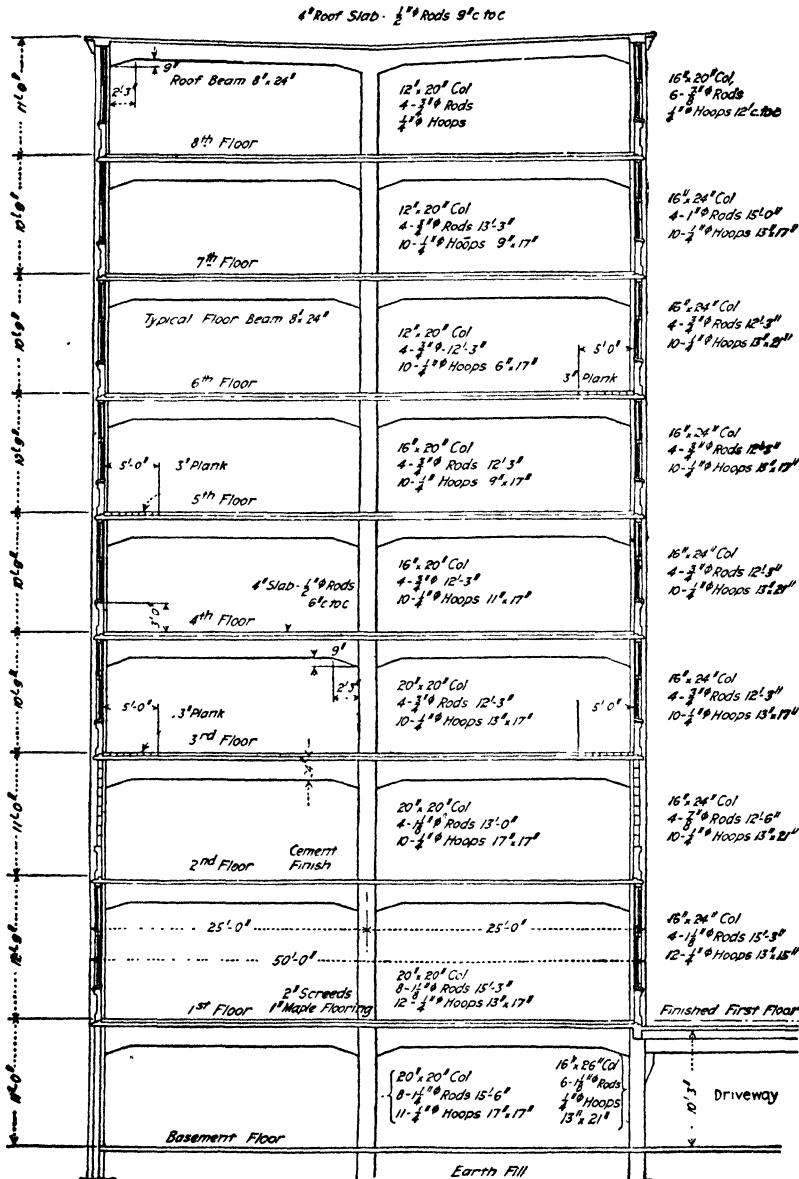 4" Roof Slab - 1/2"ϕ Rods 9" c to c
9"
Roof Beam 8" x 24"
2'-3"
12" x 20" Col
4 - 3/4"ϕ Rods
1/4"ϕ Hoops
16" x 20" Col,
6 - 7/8"ϕ Rods
1/4"ϕ Hoops 12" c. to c
11'-0"
8th Floor
12" x 20" Col
4 - 3/4"ϕ Rods 13'-3"
10 - 1/4"ϕ Hoops 9" x 17"
16" x 24" Col
4 - 1"ϕ Rods 15'-0"
10 - 1/4"ϕ Hoops 13" x 17"
7th Floor
Typical Floor Beam 8" x 24"
12" x 20" Col
4 - 3/4"ϕ - 12'-3"
10 - 1/4"ϕ Hoops 6" x 17"
5'0"
3" Plank
16" x 24" Col
4 - 3/4"ϕ Rods 12'-3"
10 - 1/4"ϕ Hoops 13" x 21"
6th Floor
5'-0"
3" Plank
16" x 20" Col
4 - 3/4"ϕ Rods 12'3"
10 - 1/4" Hoops 9" x 17"
16" x 24" Col
4 - 3/4"ϕ Rods
10 - 1/4"ϕ Hoops
5th Floor
4" Slab - 1/2"ϕ Rods
6" c to c
3'0"
16" x 20" Col
4 - 3/4"ϕ 12'-3"
10 - 1/4"ϕ Hoops 11" x 17"
16" x 24" Col
4 - 3/4"ϕ Rods 12'-3"
10 - 1/4"ϕ Hoops 13" x 21"
4th Floor
9"
2'3"
5'-0"
3" Plank
20" x 20" Col
4 - 3/4"ϕ Rods 12'-3"
10 - 1/4"ϕ Hoops 13" x 17"
5'0"
16" x 24" Col
4 - 3/4"ϕ Rods 12'-3"
10 - 1/4"ϕ Hoops 13" x 17"
3rd Floor
20" x 20" Col
4 - 1 1/8"ϕ Rods 13'-0"
10 - 1/4"ϕ Hoops 17" x 17"
16" x 24" Col
4 - 7/8"ϕ Rods 12'-6"
10 - 1/4"ϕ Hoops 13" x 21"
11'-0"
2nd Floor
Cement
Finish
25'-0"
25'-0"
50'-0"
20" x 20" Col
8 - 1 1/8"ϕ Rods 15'-3"
12 - 1/4"ϕ Hoops 13" x 17"
16" x 24" Col
4 - 1 1/8"ϕ Rods 15'-3"
12 - 1/4"ϕ Hoops 13" x 15"
1st Floor
2" Screeds
1" Maple Flooring
Finished First Floor
20" x 20" Col
8 - 1 1/4"ϕ Rods 15'-6"
11 - 1/4"ϕ Hoops 17" x 17"
16" x 26" Col
6 - 1 1/8"ϕ Rods
1/4"ϕ Hoops
13" x 21"
10'3"
Driveway
Basement Floor
Earth Fill